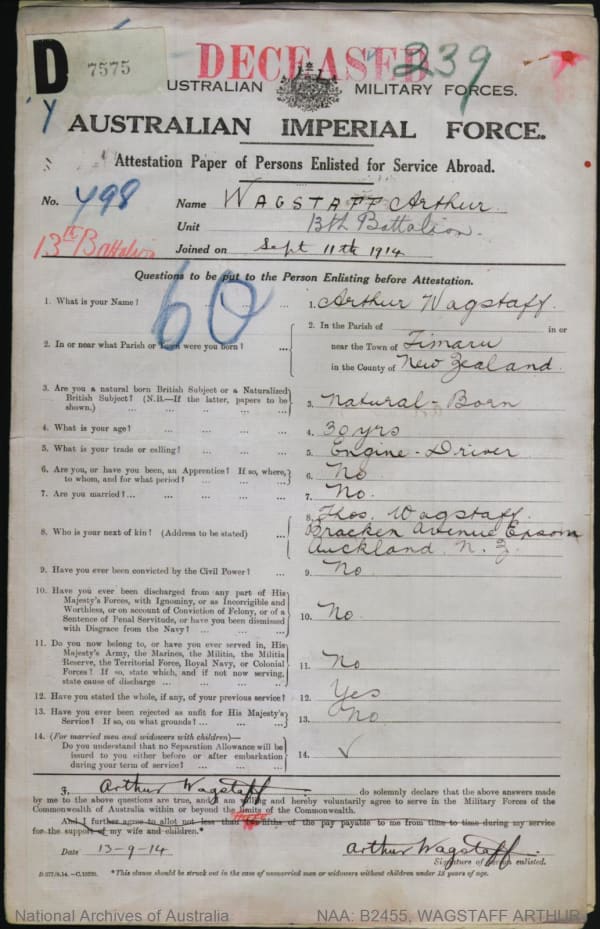 D 7575
DECEASED
239
AUSTRALIAN MILITARY FORCES.
Y
AUSTRALIAN IMPERIAL FORCE.
Attestation Paper of Persons Enlisted for Service Abroad.
No. 498
Name WAGSTAFF Arthur.
Unit 13th Battalion.
13th Battalion
Joined on Sept 11th 1914
Questions to be put to the Person Enlisting before Attestation.
60
1. What is your Name? ... ... ... 1. Arthur Wagstaff.
2. In or near what Parish or Town were you born? ...
2. In the Parish of in or
near the Town of Timaru
in the County of New Zealand.
3. Are you a natural born British Subject or a Naturalized
British Subject? (N.B.—If the latter, papers to be
shown.) ... ... ... ...
3. Natural-Born
4. What is your age? ... ... ... ... 4. 30 yrs
5. What is your trade or calling? ... ... ... 5. Engine-Driver
6. Are you, or have you been, an Apprentice? If so, where,
to whom, and for what period? ... ... ...
6. No.
7. Are you married?... ... ... ... ... 7. No.
8. Who is your next of kin? (Address to be stated) ...
8. Thos. Wagstaff.
Bracken Avenue Epsom
Auckland. N. Z.
9. Have you ever been convicted by the Civil Power? ... 9. No
10. Have you ever been discharged from any part of His
Majesty's Forces, with Ignominy, or as Incorrigible and
Worthless, or on account of Conviction of Felony, or of a
Sentence of Penal Servitude, or have you been dismissed
with Disgrace from the Navy? ... ... ...
10. No.
11. Do you now belong to, or have you ever served in, His
Majesty's Army, the Marines, the Militia, the Militia
Reserve, the Territorial Force, Royal Navy, or Colonial
Forces? If so, state which, and if not now serving,
state cause of discharge ... ... ... ...
11. No
12. Have you stated the whole, if any, of your previous service? 12. Yes
13. Have you ever been rejected as unfit for His Majesty's
Service? If so, on what grounds?... ... ...
13. No
14. (For married men and widowers with children)—
Do you understand that no Separation Allowance will be
issued to you either before or after embarkation
during your term of service? ... ... ...
14. ✓
I, Arthur Wagstaff do solemnly declare that the above answers made
by me to the above questions are true, and I am willing and hereby voluntarily agree to serve in the Military Forces of the
Commonwealth of Australia within or beyond the limits of the Commonwealth.
And I further agree to allot not less than fifths of the pay payable to me from time to time during my service
for the support of my wife and children.*
Date 13-9-14
Arthur Wagstaff.
Signature of person enlisted.
*This clause should be struck out in the case of unmarried men or widowers without children under 18 years of age.
National Archives of Australia
NAA: B2455, WAGSTAFF ARTHUR